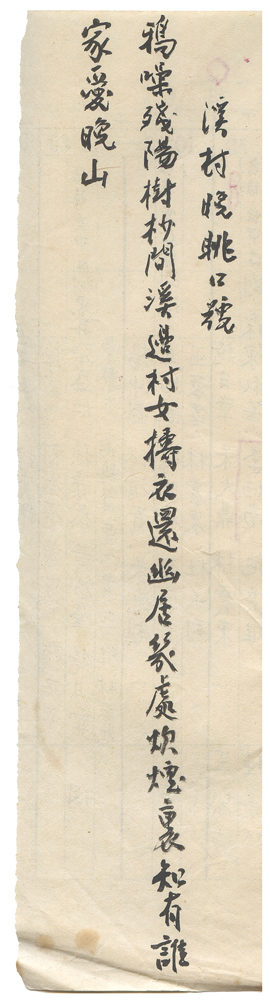 溪村晚眺口號
鴉噪殘陽樹杪間溪邊村女擣衣還幽居幾處炊煙裏知有誰
家愛晚山